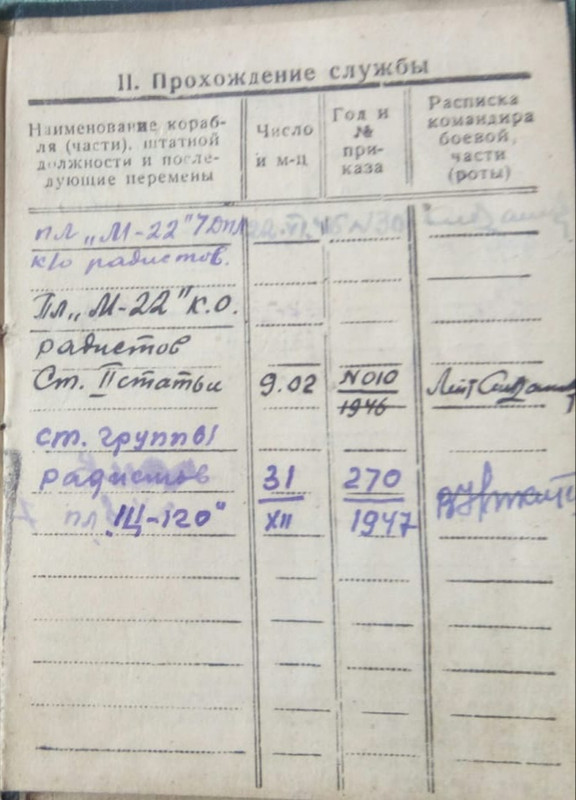 II. Прохождение службы
Наименование кораб-
ля (части), штатной
должности и после-
дующие перемены
Число
и м-ц
Год и
№
при-
каза
Расписка
командира
боевой,
части
(роты)
пл „М-22" 7 дпл 22.VI.46 N30
к/о радистов.
Пл „М-22" к.о.
радистов
Ст. II статьи 9.02 N010 Лейт
1946
ст. группы
радистов 31 270
пл „Щ-120" XII 1947